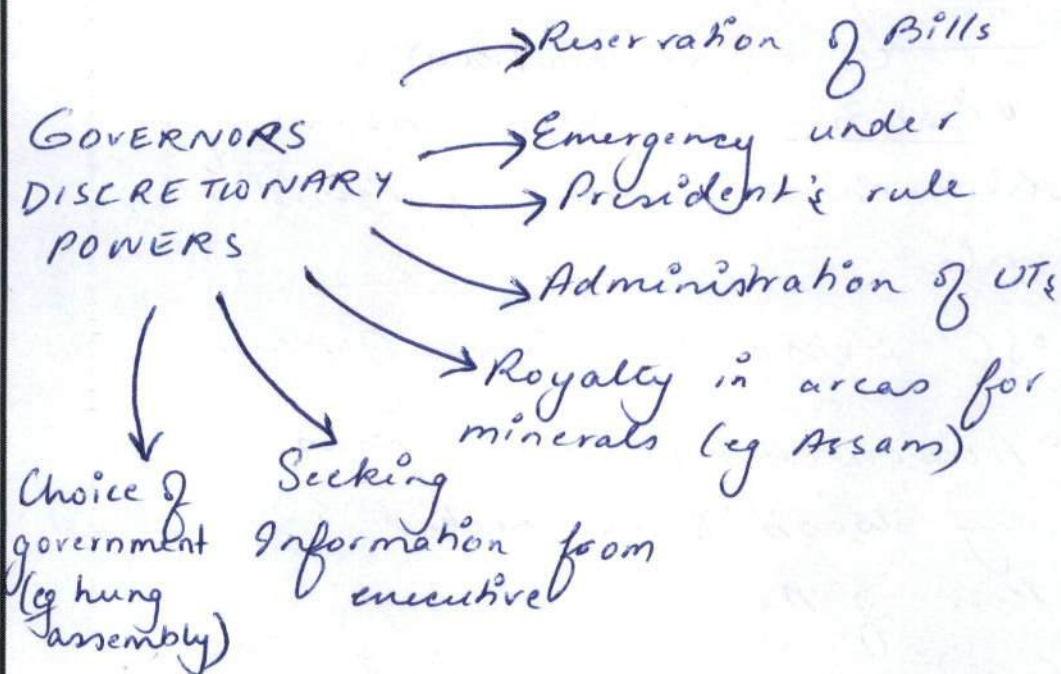 Reservation of Bills
GOVERNORS
DISCRETIONARY
POWERS
Emergency under
President's rule
Administration of UTs
Royalty in areas for
minerals (eg Assam)
Choice of
government
(eg hung
assembly)
Seeking
Information from
executive